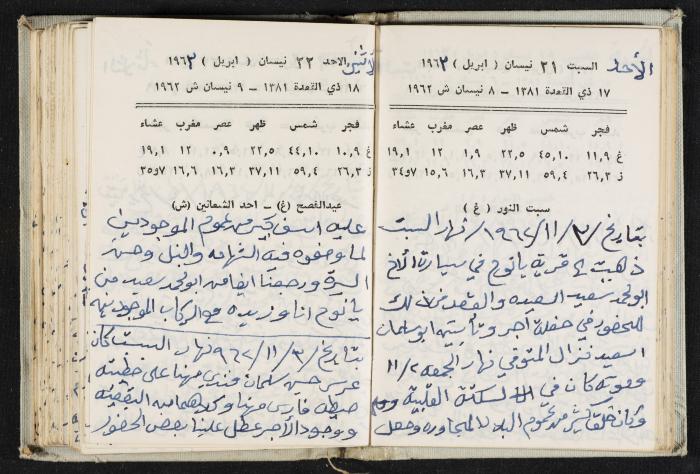 الأحد
السبت ٢١ نيسان ( ابريل ) ١٩٦٣
١٧ ذي القعدة ١٣٨١ – ٨ نيسان ش ١٩٦٢
فجر شمس ظهر عصر مغرب عشاء
غ ١١,٩ ٤٥,١٠ ٢٢,٥ ١,٩ ١٢ ١٩,١
ز ٢٦,٣ ٥٩,٤ ٣٧,١١ ١٦,٣ ١٥,٦ ٣٤و٧
سبت النور ( غ )
بتاريخ /٣/ ١١/ ١٩٦٢/ نهار السبت
ذهبت الى قرية يانوح في سيارة الأخ
ابو محمد سعيد والقصد من ذلك
للحضور في حفلة أجر وتأبين ابو سلمان
اسعيد نزال المتوفي نهار الجمعه ١١/٢
وموته كان في السكتة القلبية
وكان خلق كثير من عموم البلاد المجاوره وحصل
الاثنين
الاحد ٢٢ نيسان ( ابريل ) ١٩٦٣
١٨ ذي القعدة ١٣٨١ – ٩ نيسان ش ١٩٦٢
فجر شمس ظهر عصر مغرب عشاء
غ ١٠,٩ ٤٤,١٠ ٢٢,٥ ٠,٩ ١٢ ١٩,١
ز ٢٦,٣ ٥٩,٤ ٣٧,١١ ١٦,٣ ١٦,٦ ٣٥و٧
عيدالفصح (غ) – احد الشعانين (ش)
عليه اسف كبير من عموم الموجودين
لما وصفوه فيه الشهامه والنبل وحسن
السيرة ورجعنا ايضا مع ابو محمد سعيد من
يانوح انا وزيده مع الركاب الموجودين
بتاريخ /٣/ ١١/ ٩٦٢ نهار السبت كان
عرس حسن سلمان مهنا على خطيبته
فارس مهنا وكلاهما من البقيعة
ووجود الأجر عطل علينا بعض الحضور